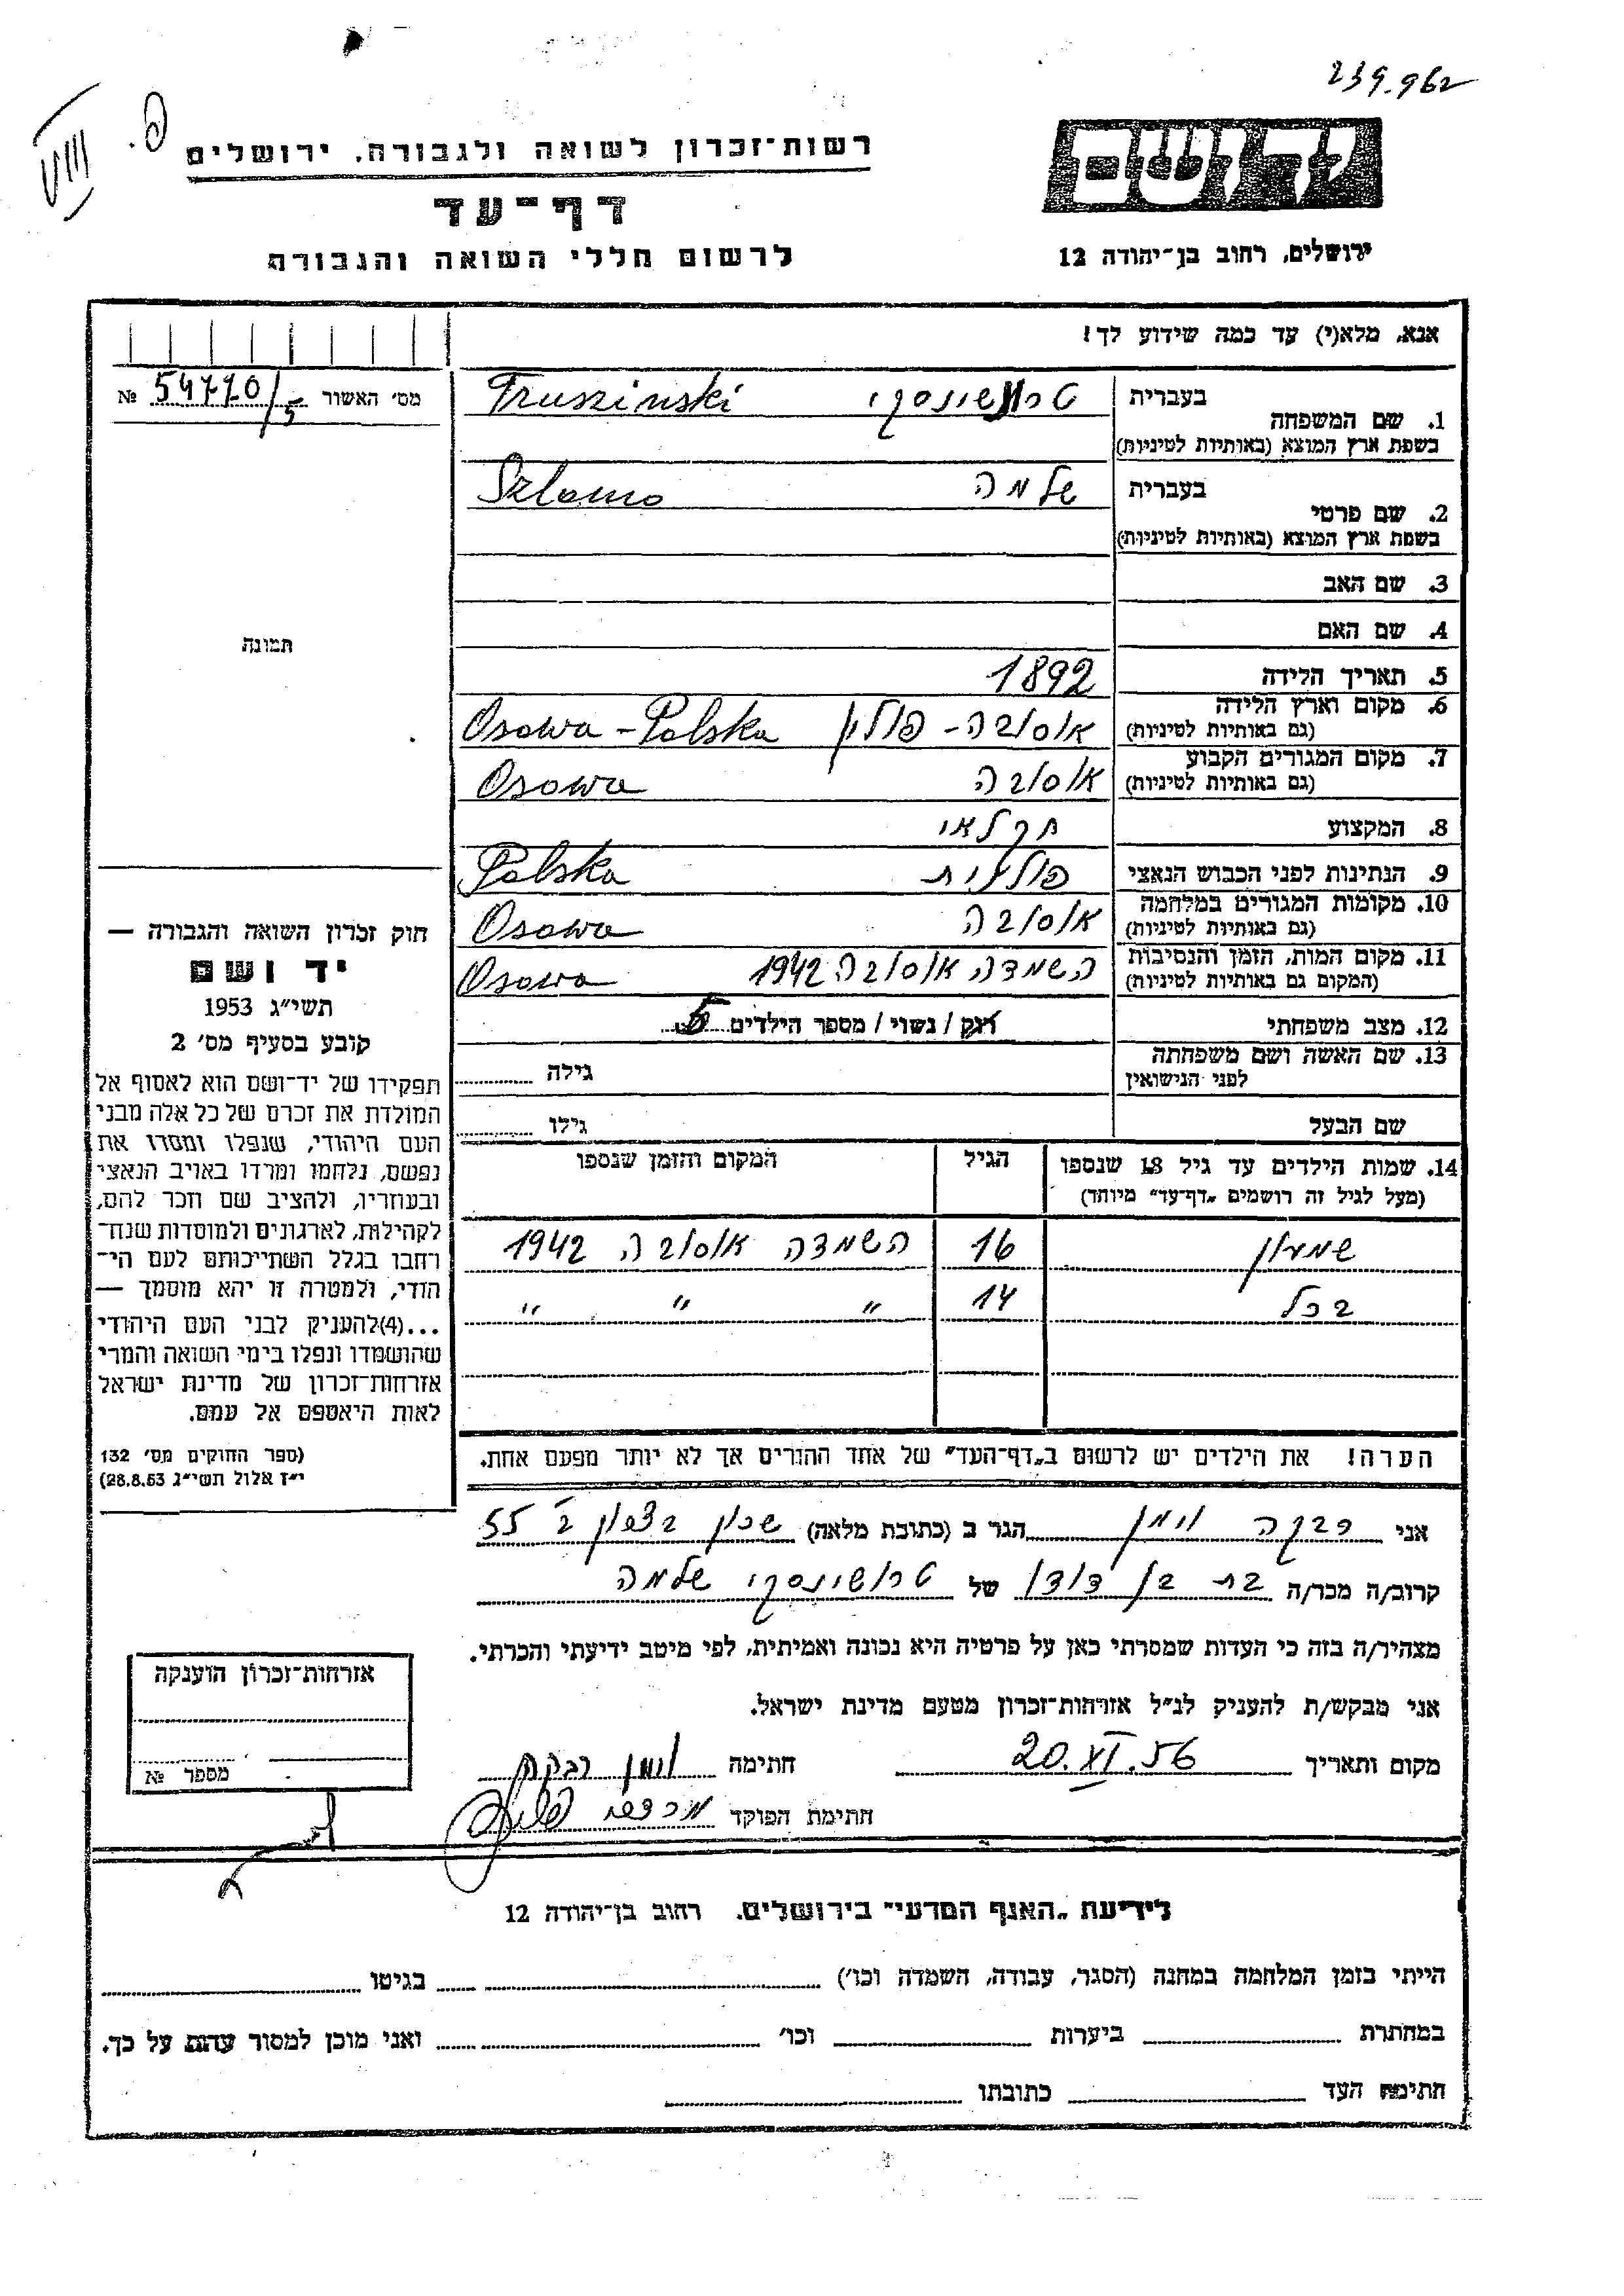 239.962
VIII
פ.
רשות־זכרון לשואה ולגבורה, ירושלים
דף־עד
לרשום חללי השואה והגבורה
יד ושם
ירושלים, רחוב בן־יהודה 12
אנא, מלא(י) עד כמה שידוע לך!
מס׳ האשור 54770/5 №
1. שם המשפחה בעברית טרושינסקי Truszinski
בשפת ארץ המוצא (באותיות לטיניות)
2. שם פרטי בעברית שלמה Szlomo
בשפת ארץ המוצא (באותיות לטיניות)
3. שם האב
4. שם האם
תמונה
5. תאריך הלידה 1892
6. מקום וארץ הלידה אוסובה - פולין Osowa - Polska
(גם באותיות לטיניות)
7. מקום המגורים הקבוע אוסובה Osowa
(גם באותיות לטיניות)
8. המקצוע חקלאי
9. הנתינות לפני הכבוש הנאצי פולנית Polska
10. מקומות המגורים במלחמה אוסובה Osowa
(גם באותיות לטיניות)
11. מקום המות, הזמן והנסיבות השמדה אוסובה 1942 Osowa
(המקום גם באותיות לטיניות)
12. מצב משפחתי רוק / נשוי / מספר הילדים 5
13. שם האשה ושם משפחתה גילה
לפני הנישואין
שם הבעל גילו
14. שמות הילדים עד גיל 18 שנספו הגיל המקום והזמן שנספו
(מעל לגיל זה רושמים „דף־עד״ מיוחד)
שמעון 16 השמדה אוסובה 1942
14 " " "
הערה! את הילדים יש לרשום ב„דף־העד״ של אחד ההורים אך לא יותר מפעם אחת.
חוק זכרון השואה והגבורה —
יד ושם
תשי״ג 1953
קובע בסעיף מס׳ 2
תפקידו של יד־ושם הוא לאסוף אל
המולדת את זכרם של כל אלה מבני
העם היהודי, שנפלו ומסרו את
נפשם, נלחמו ומרדו באויב הנאצי
ובעוזריו, ולהציב שם וזכר להם,
לקהילות, לארגונים ולמוסדות שנח־
רחבו בגלל השתייכותם לעם הי־
הודי, ולמטרה זו יהא מוסמך —
...(4)להעניק לבני העם היהודי
שהושמדו ונפלו בימי השואה והמרי
אזרחות־זכרון של מדינת ישראל
לאות היאספם אל עמם.
(ספר החוקים מס׳ 132
י״ז אלול תשי״ג 28.8.53)
אני רבקה וימן הגר ב (כתובת מלאה) שכון בצפון ב׳ 55
קרוב/ה מכר/ה בת בן דודו של טרושינסקי שלמה
מצהיר/ה בזה כי העדות שמסרתי כאן על פרטיה היא נכונה ואמיתית, לפי מיטב ידיעתי והכרתי.
אני מבקש/ת להעניק לנ״ל אזרחות־זכרון מטעם מדינת ישראל.
מקום ותאריך 20.XI.56 חתימה וימן רבקה
חתימת הפוקד מרדכי
אזרחות־זכרון הוענקה
מספר №
לידיעת „האגף המדעי״ בירושלים, רחוב בן־יהודה 12
הייתי בזמן המלחמה במחנה (הסגר, עבודה, השמדה וכו׳) בגיטו
במחתרת ביערות וכו׳ ואני מוכן למסור עדות על כך.
חתימת העד כתובתו